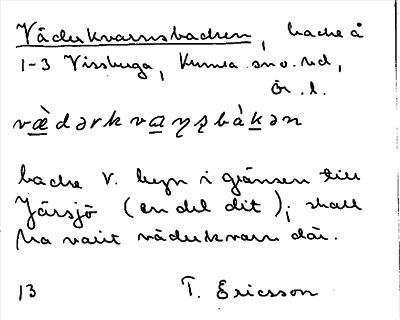 Väderkvarnsbacken, backe å
1-3 Vissberga, Kumla sn o. hd,
Ör. l.
væ̀dərkvaɳʂbàkən
backe V. byn i gränsen till
Järsjö (en del dit); skall
ha varit väderkvarn där.
13 T. Ericsson